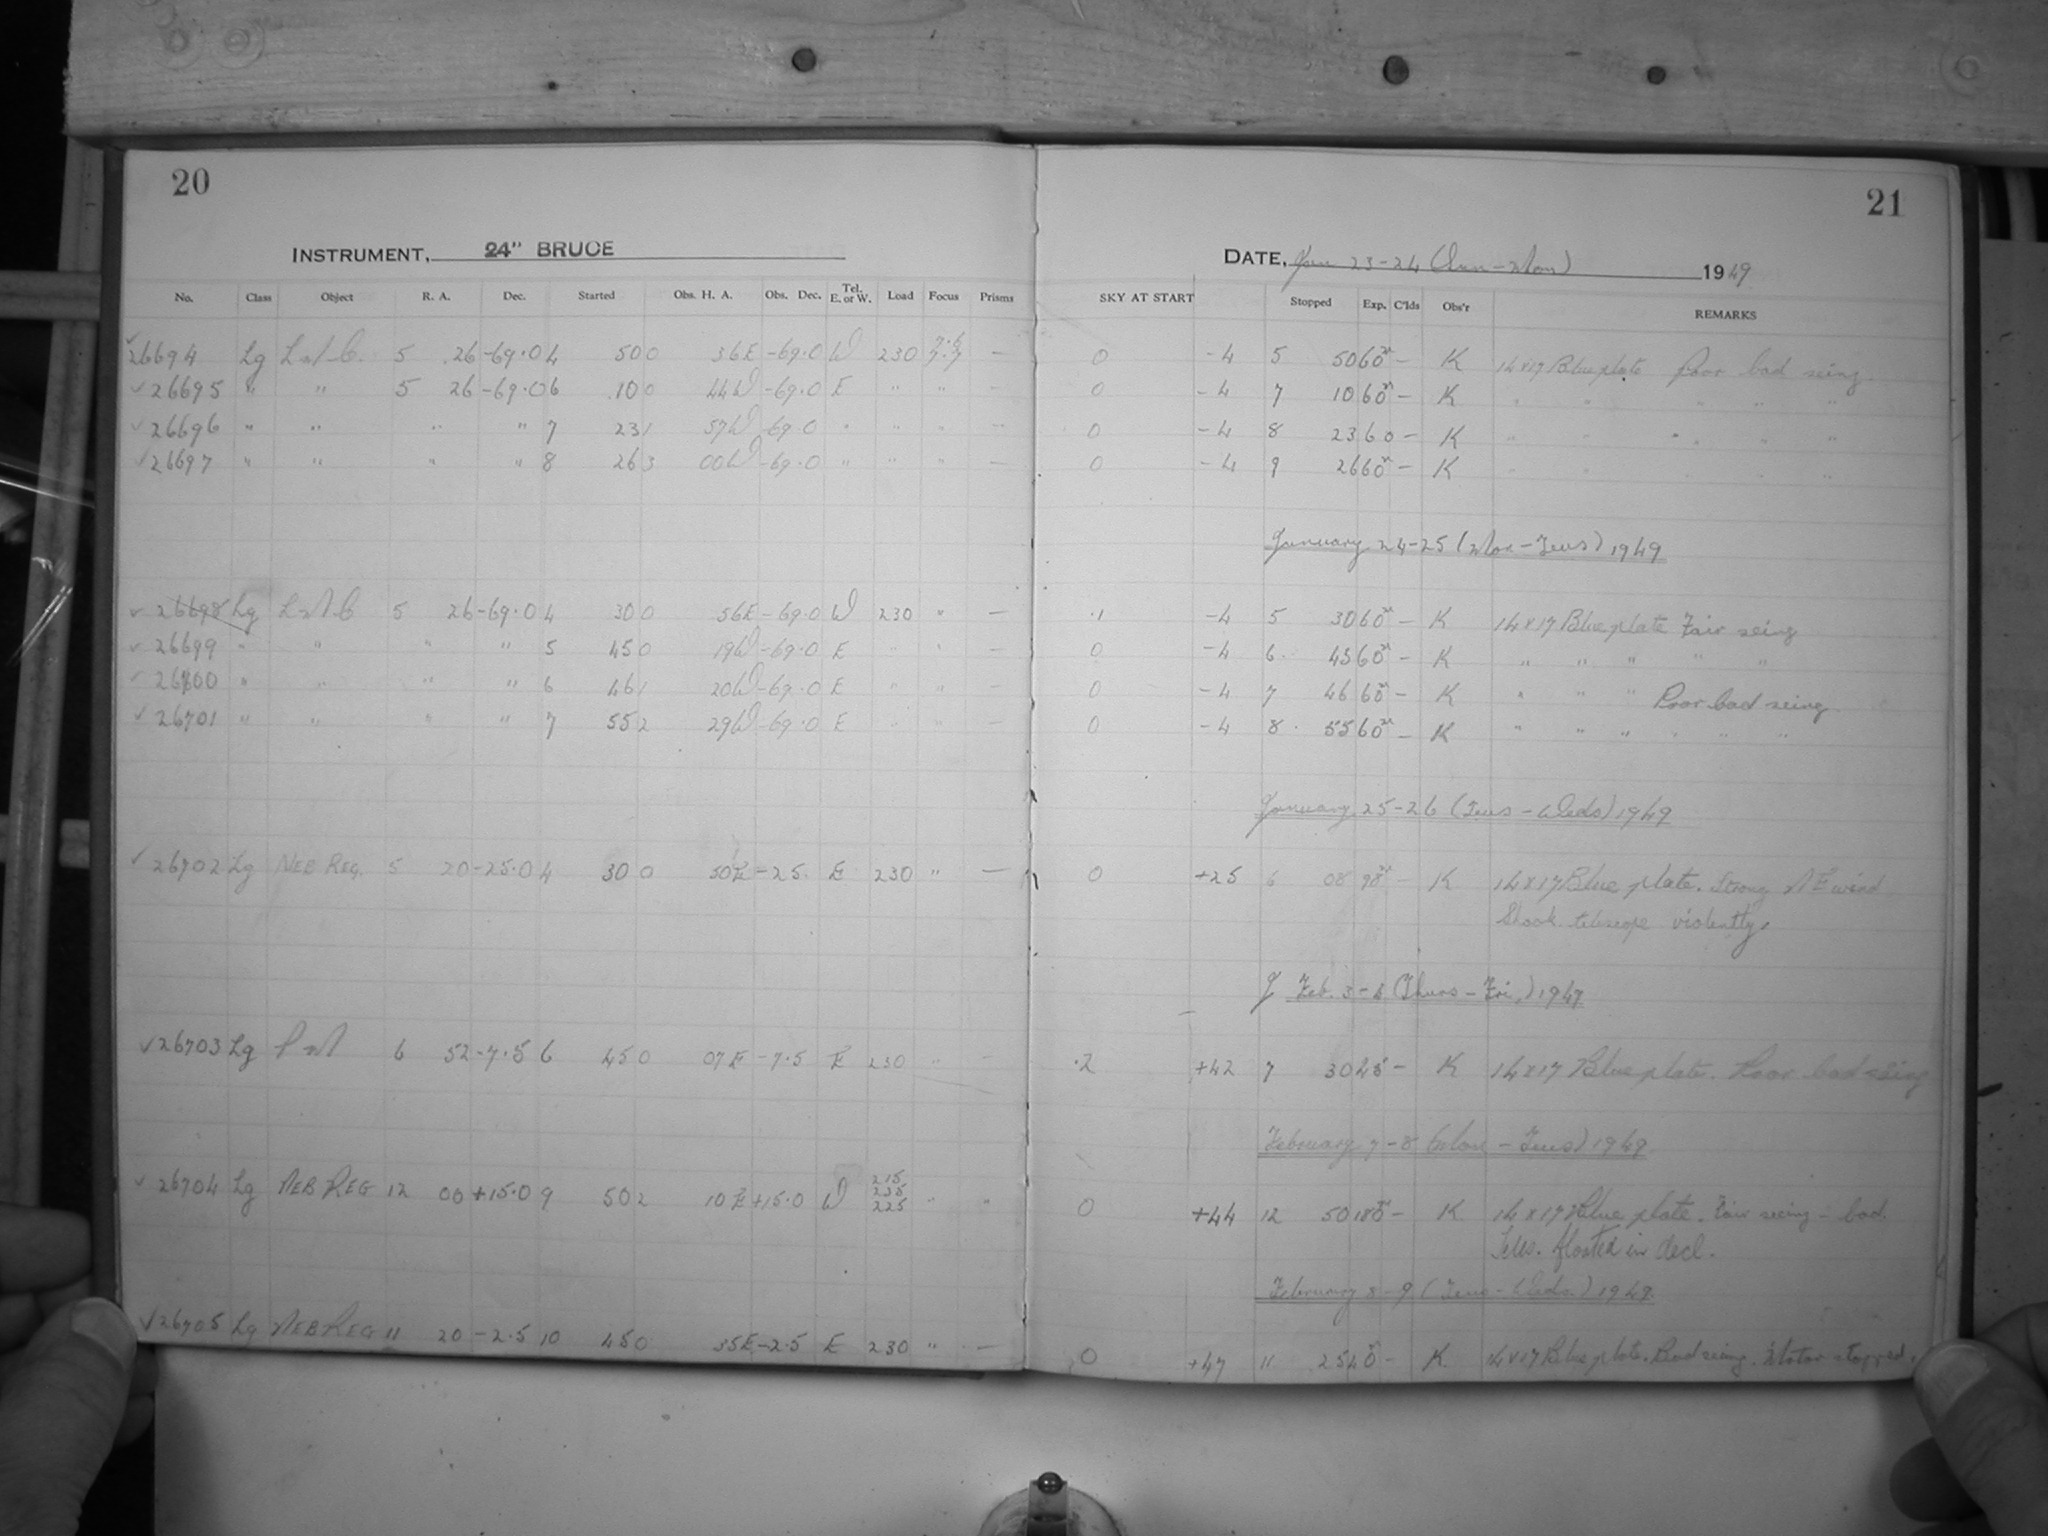 20
INSTRUMENT, 24" BRUCE
No. Class Object R. A. Dec. Started Obs. H. A. Obs. Dec. Tel. E. or W. Load Focus Prisms
26694 Lg L M C. 5 26 -69.0 4 50 0 36E -69.0 W 230 7.6 7.7 —
26695 " " 5 26 -69.0 6 10 0 44W -69.0 E " " "
26696 " " " " 7 23 1 57W -69.0 " " " "
26697 " " " " 8 26 3 00W -69.0 " " " —
26698 Lg L M C 5 26 -69.0 4 30 0 56E -69.0 W 230 " —
26699 " " " " 5 45 0 19W -69.0 E " " —
26700 " " " " 6 46 1 20W -69.0 E " " —
26701 " " " " 7 55 2 29W -69.0 E " " —
26702 Lg NEB REG. 5 20 -25.0 4 30 0 50E -25. E 230 " —
26703 Lg 6 52 -7.5 6 45 0 07E -7.5 E 230 " —
26704 Lg NEB REG 12 00 +15.0 9 50 2 10E +15.0 W 215 235 225 " "
26705 Lg NEB REG 11 20 -2.5 10 45 0 35E -2.5 E 230 " —
21
DATE, Jan 23-24 (Sun-Mon) 1949
SKY AT START Stopped Exp. C'lds Obs'r REMARKS
0 -4 5 50 60m — K 14x17 Blue plate Poor bad seing
0 -4 7 10 60m — K " " " " "
0 -4 8 23 60 — K " " " " " "
0 -4 9 26 60m — K " " " " "
January 24-25 (Mon-Tues) 1949
.1 -4 5 30 60m — K 14x17 Blue plate Fair seing
0 -4 6 45 60m — K " " " " "
0 -4 7 46 60m — K " " " Poor bad seing
0 -4 8 55 60m — K " " " " " "
January 25-26 (Tues-Weds) 1949
0 +25 6 08 98m — K 14x17 Blue plate. Strong NE wind
Shook telescope violently.
Feb. 3-4 (Thurs-Fri.) 1949
.2 +42 7 30 45 — K 14x17 Blue plate. Poor bad seing
February 7-8 (Mon-Tues) 1949
0 +44 12 50 180m — K 14x17 Blue plate. Fair seeing - bad.
Teles. floated in decl.
February 8-9 (Tues-Weds.) 1949
0 +47 11 25 40m — K 14x17 Blue plate. Bad seing. Motor stopped.